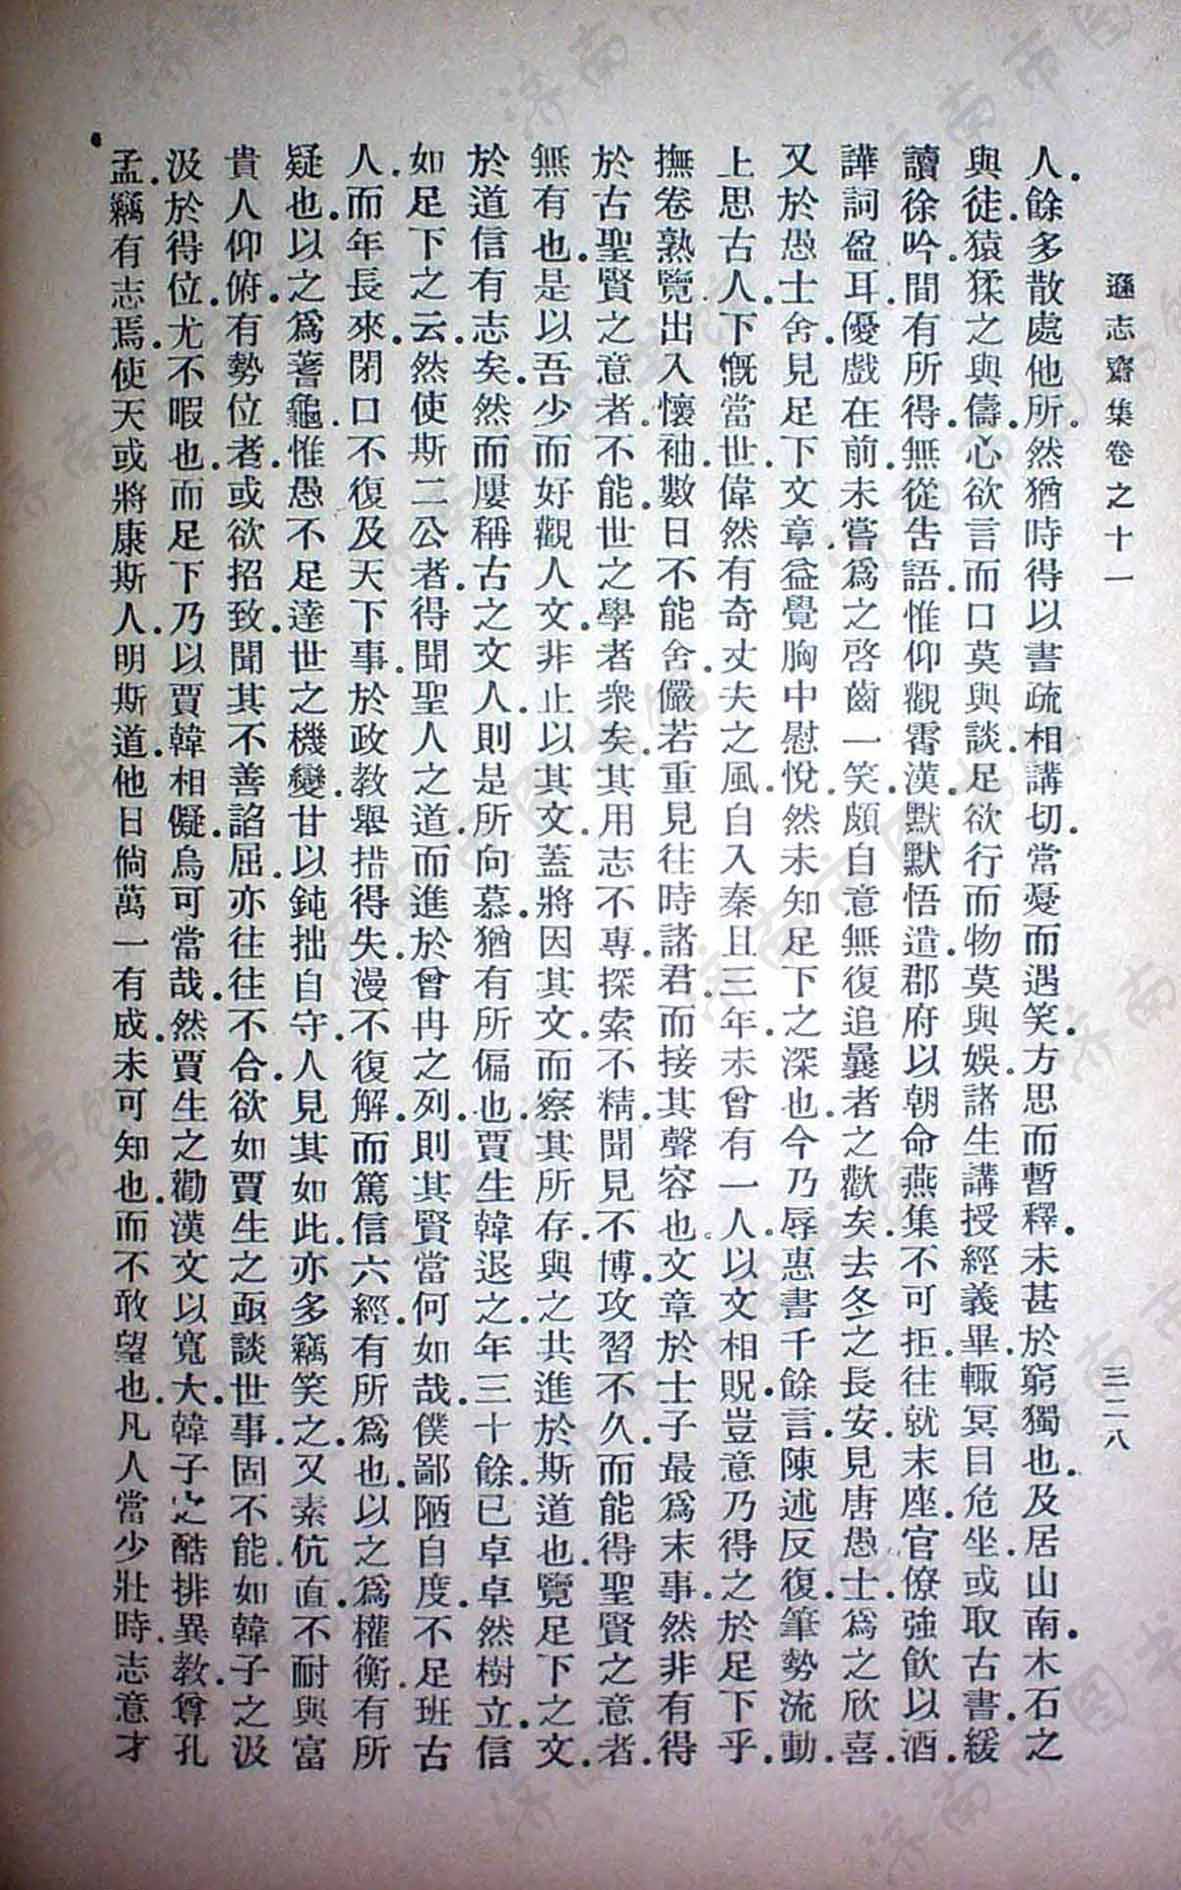 遜志齋集卷之十一
三二八
人.餘多散處他所.然猶時得以書疏相講切.當憂而遇笑.方思而暫釋.未甚於窮獨也.及居山南.木石之
與徒.猿猱之與儔.心欲言而口莫與談.足欲行而物莫與娛.諸生講授經義畢.輒冥目危坐.或取古書.緩
讀徐吟.間有所得.無從告語.惟仰觀霄漢.默默悟遣.郡府以朝命燕集.不可拒.往就末座.官僚強飲以酒.
譁詞盈耳.優戲在前.未嘗爲之啓齒一笑.頗自意無復追曩者之歡矣.去冬之長安.見唐愚士.爲之欣喜.
又於愚士舍.見足下文章.益覺胸中慰悅.然未知足下之深也.今乃辱惠書千餘言.陳述反復.筆勢流動.
上思古人.下慨當世.偉然有奇丈夫之風.自入秦且三年.未曾有一人.以文相貺.豈意乃得之於足下乎.
撫卷熟覽.出入懷袖.數日不能舍.儼若重見往時諸君.而接其聲容也.文章於士子.最爲末事.然非有得
於古聖賢之意者.不能.世之學者衆矣.其用志不專.探索不精.聞見不博.攻習不久.而能得聖賢之意者.
無有也.是以吾少而好觀人文.非止以其文.蓋將因其文.而察其所存.與之共進於斯道也.覽足下之文.
於道信有志矣.然而屢稱古之文人.則是所向慕.猶有所偏也.賈生韓退之.年三十餘.已卓卓然樹立.信
如足下之云.然使斯二公者.得聞聖人之道.而進於曾冉之列.則其賢當何如哉.僕鄙陋自度.不足班古
人.而年長來.閉口不復及天下事.於政教舉措得失.漫不復解.而篤信六經.有所爲也.以之爲權衡.有所
疑也.以之爲蓍龜.惟愚不足達世之機變.甘以鈍拙自守.人見其如此.亦多竊笑之.又素伉直.不耐與富
貴人仰俯.有勢位者.或欲招致.聞其不善諂屈.亦往往不合.欲如賈生之亟談世事.固不能.如韓子之汲
汲於得位.尤不暇也.而足下乃以賈韓相儗.烏可當哉.然賈生之勸漢文以寬大.韓子之酷排異教.尊孔
孟.竊有志焉.使天或將康斯人.明斯道.他日倘萬一有成.未可知也.而不敢望也.凡人當少壯時.志意才